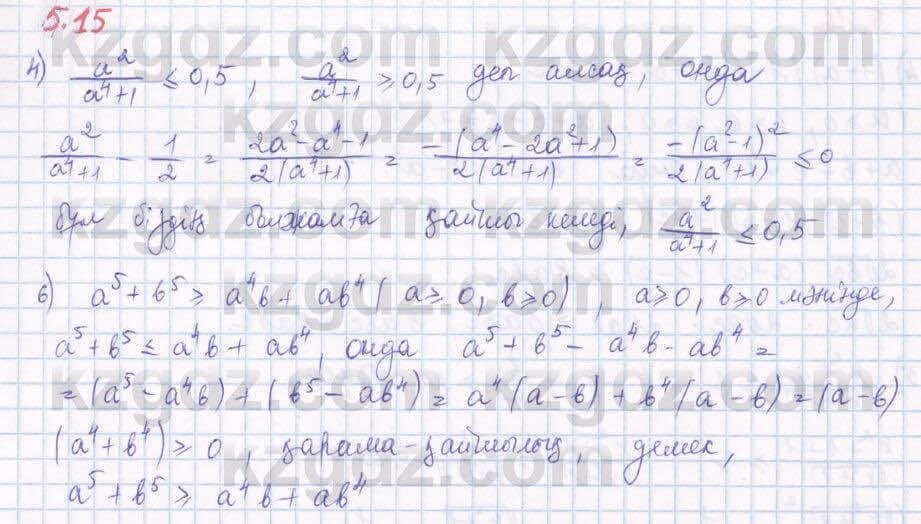 5.15
4) a²/(a⁴+1) ≤ 0,5, a²/(a⁴+1) ≥ 0,5 деп алсақ, онда
a²/(a⁴+1) - 1/2 = (2a²-a⁴-1)/(2(a⁴+1)) = -(a⁴-2a²+1)/(2(a⁴+1)) = -(a²-1)²/(2(a⁴+1)) ≤ 0
бұл біздің болжамға қайшы келеді, a²/(a⁴+1) ≤ 0,5
6) a⁵+b⁵ ≥ a⁴b + ab⁴ (a ≥ 0, b ≥ 0), a ≥ 0, b ≥ 0 мәнінде,
a⁵+b⁵ ≤ a⁴b + ab⁴, онда a⁵+b⁵ - a⁴b - ab⁴ =
= (a⁵ - a⁴b) + (b⁵ - ab⁴) = a⁴(a-b) + b⁴(a-b) = (a-b)
(a⁴+b⁴) ≥ 0, қарама-қайшылық, демек,
a⁵+b⁵ ≥ a⁴b + ab⁴
kzgdz.com